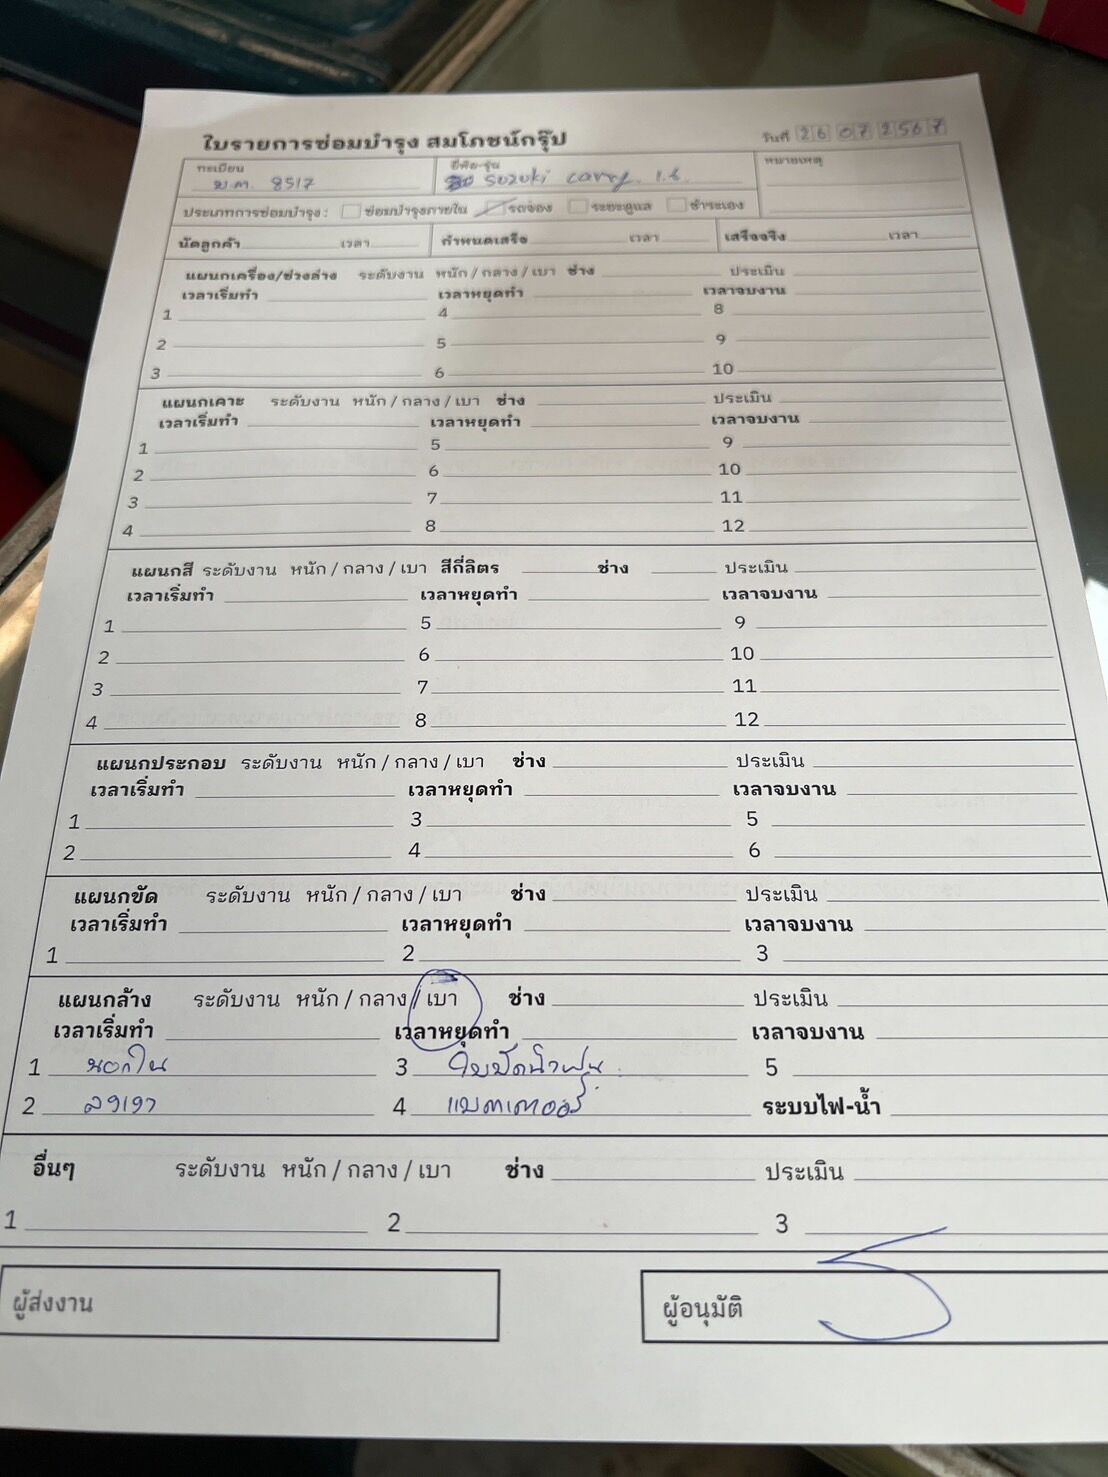 ใบรายการซ่อมบำรุง สมโภชนักรุ๊ป วันที่ 26 07 2567
ทะเบียน ยี่ห้อ-รุ่น หมายเหตุ
บ.ต. 8517 Suzuki carry 1.6
ประเภทการซ่อมบำรุง : ซ่อมบำรุงภายใน รถจอง ระยะดูแล ชำระเอง
นัดลูกค้า เวลา กำหนดเสร็จ เวลา เสร็จจริง เวลา
แผนกเครื่อง/ช่วงล่าง ระดับงาน หนัก / กลาง / เบา ช่าง ประเมิน
เวลาเริ่มทำ เวลาหยุดทำ เวลาจบงาน
1 4 8
2 5 9
3 6 10
แผนกเคาะ ระดับงาน หนัก / กลาง / เบา ช่าง ประเมิน
เวลาเริ่มทำ เวลาหยุดทำ เวลาจบงาน
1 5 9
2 6 10
3 7 11
4 8 12
แผนกสี ระดับงาน หนัก / กลาง / เบา สีกี่ลิตร ช่าง ประเมิน
เวลาเริ่มทำ เวลาหยุดทำ เวลาจบงาน
1 5 9
2 6 10
3 7 11
4 8 12
แผนกประกอบ ระดับงาน หนัก / กลาง / เบา ช่าง ประเมิน
เวลาเริ่มทำ เวลาหยุดทำ เวลาจบงาน
1 3 5
2 4 6
แผนกขัด ระดับงาน หนัก / กลาง / เบา ช่าง ประเมิน
เวลาเริ่มทำ เวลาหยุดทำ เวลาจบงาน
1 2 3
แผนกล้าง ระดับงาน หนัก / กลาง / เบา ช่าง ประเมิน
เวลาเริ่มทำ เวลาหยุดทำ เวลาจบงาน
1 นอกใน 3 ใบปัดน้ำฝน 5
2 ลงเงา 4 แบตเตอรี่ ระบบไฟ-น้ำ
อื่นๆ ระดับงาน หนัก / กลาง / เบา ช่าง ประเมิน
1 2 3
ผู้ส่งงาน ผู้อนุมัติ